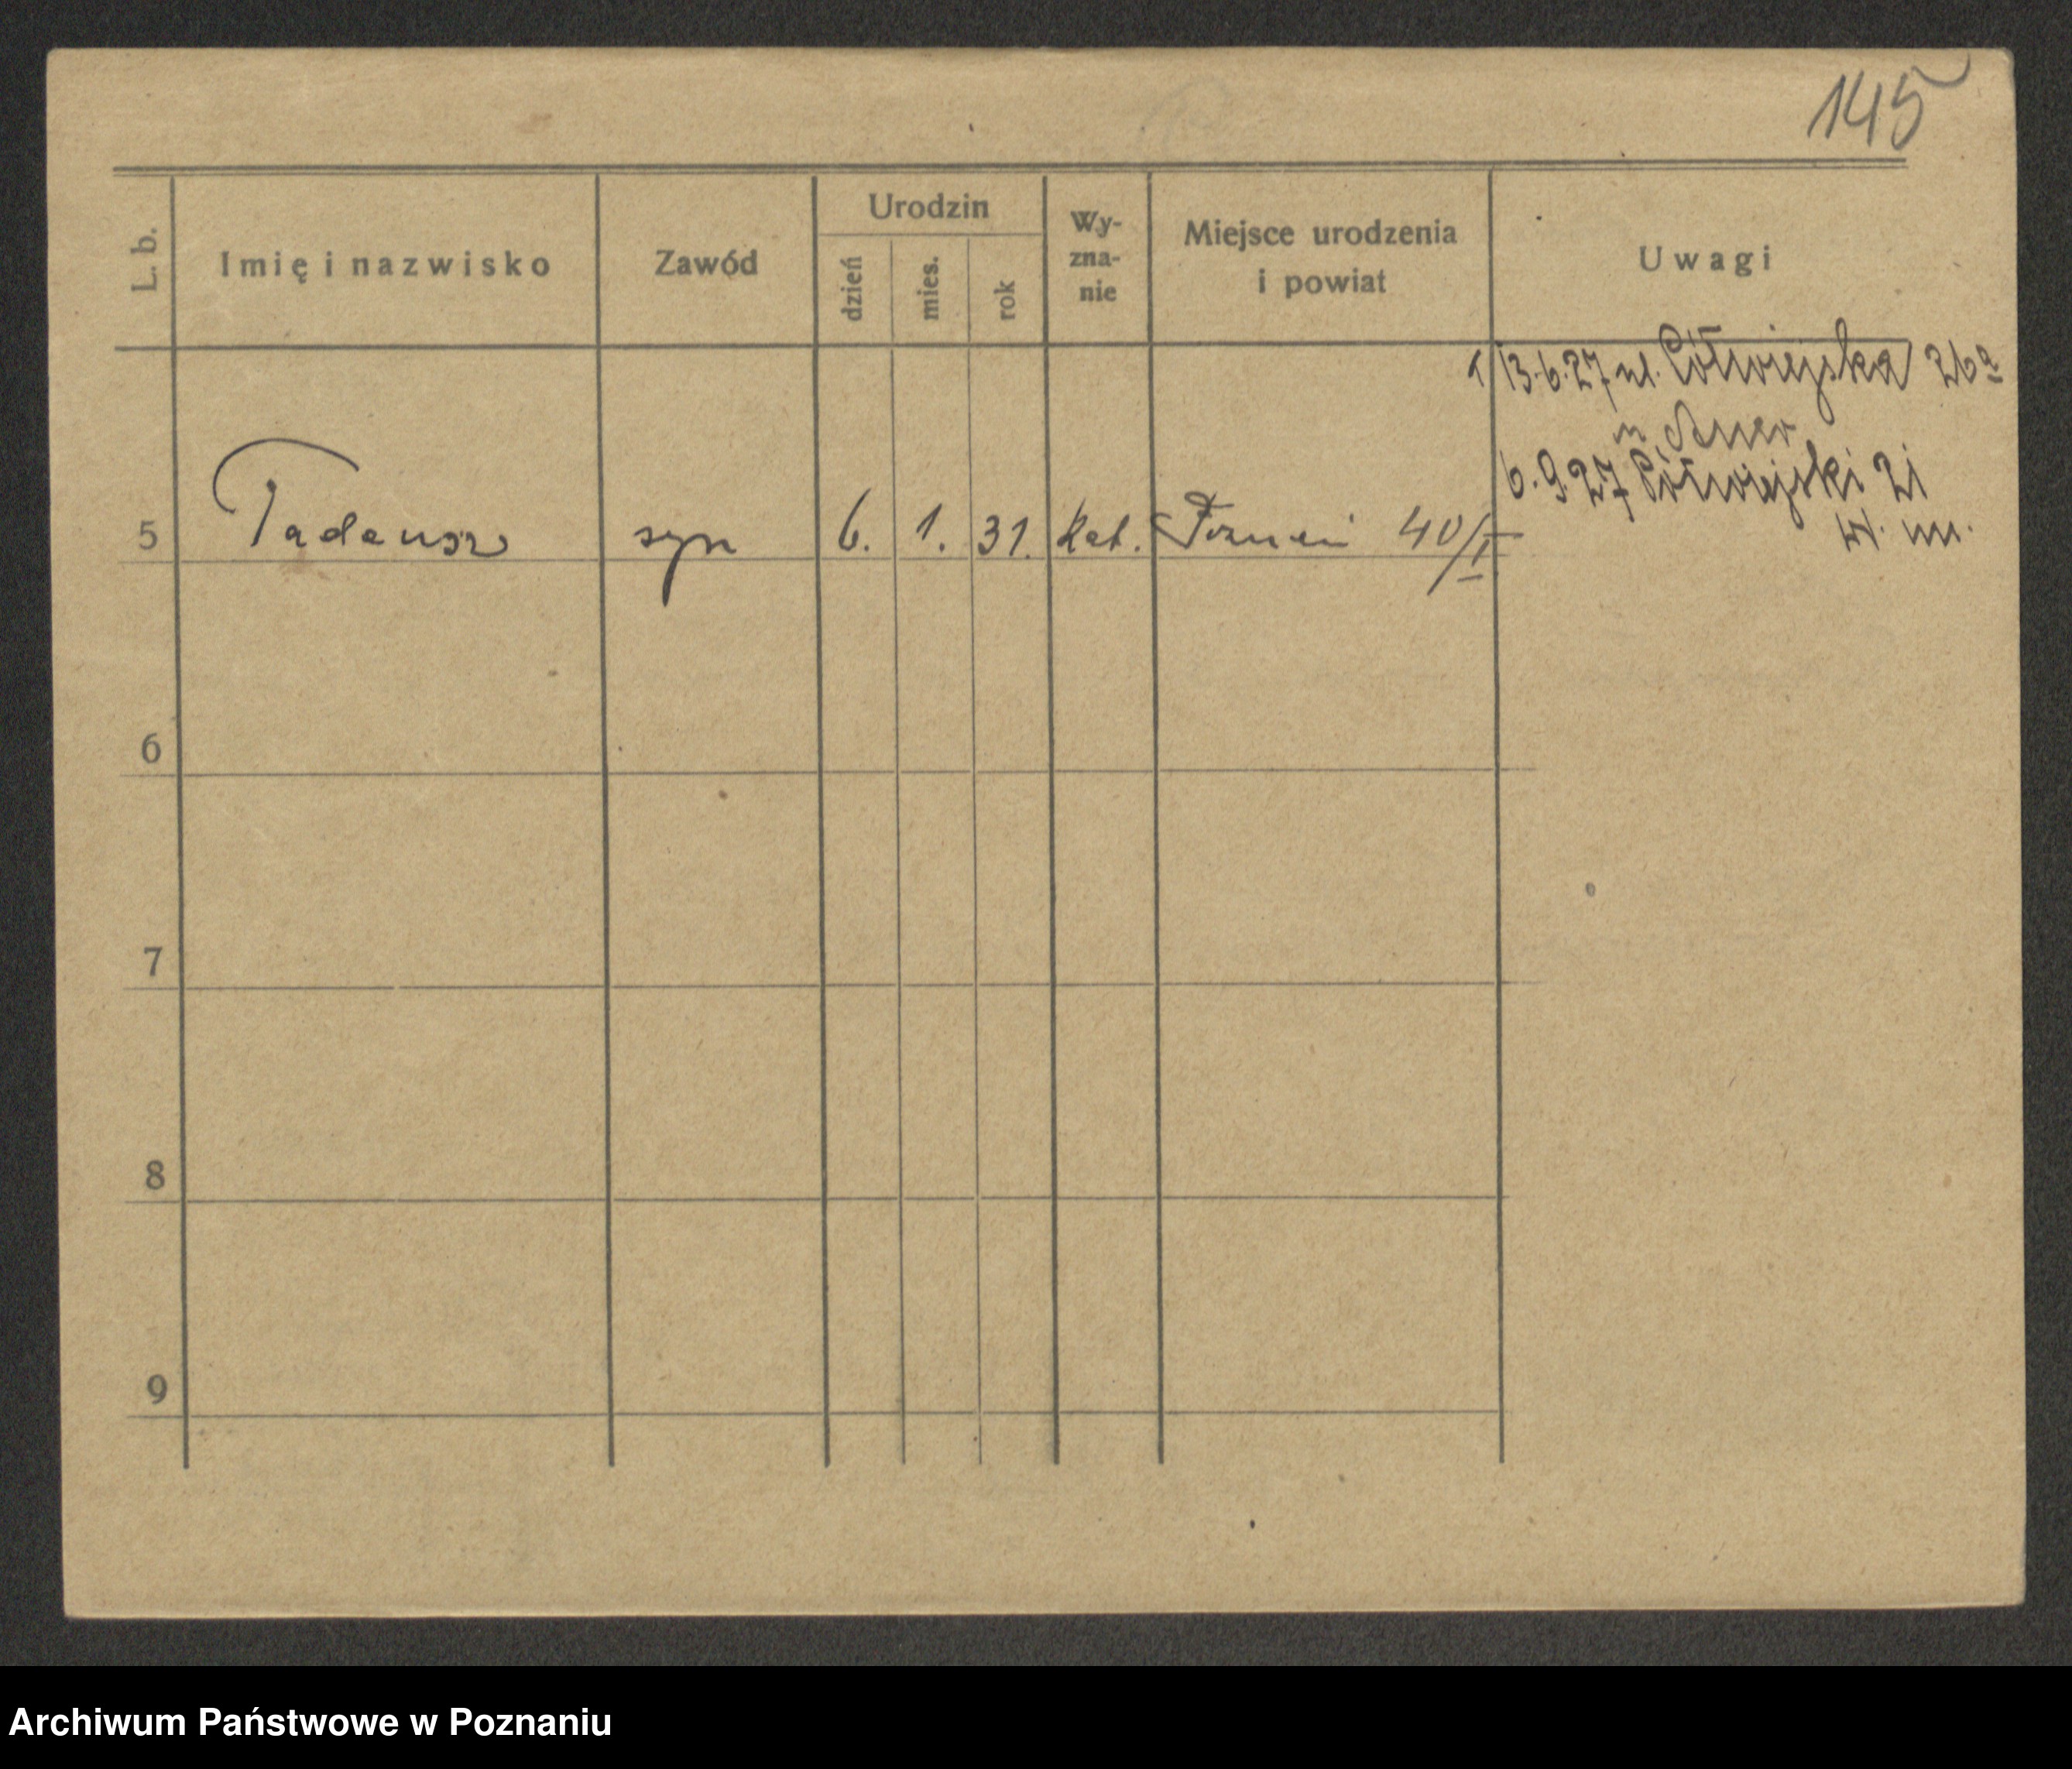 145
L. b.
Imię i nazwisko
Zawód
Urodzin
dzień
mies.
rok
Wy-
zna-
nie
Miejsce urodzenia
i powiat
Uwagi
13.6.27 ul. Półwiejska 26a
u
6.9.27 Półwiejski 21
5 Tadeusz syn 6. 1. 31. kat. Poznań 40/I
6
7
8
9
Archiwum Państwowe w Poznaniu